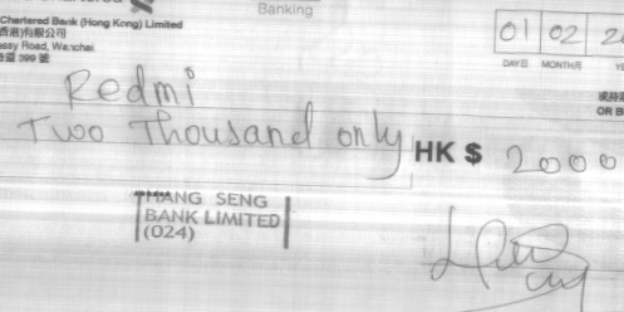 Banking
Chartered Bank (Hong Kong) Limited
(香港)有限公司
Road, Wanchai
399 號
01 02
DAY日 MONTH月
Redmi
OR B
Two Thousand only HK $ 2000
HANG SENG
BANK LIMITED
(024)